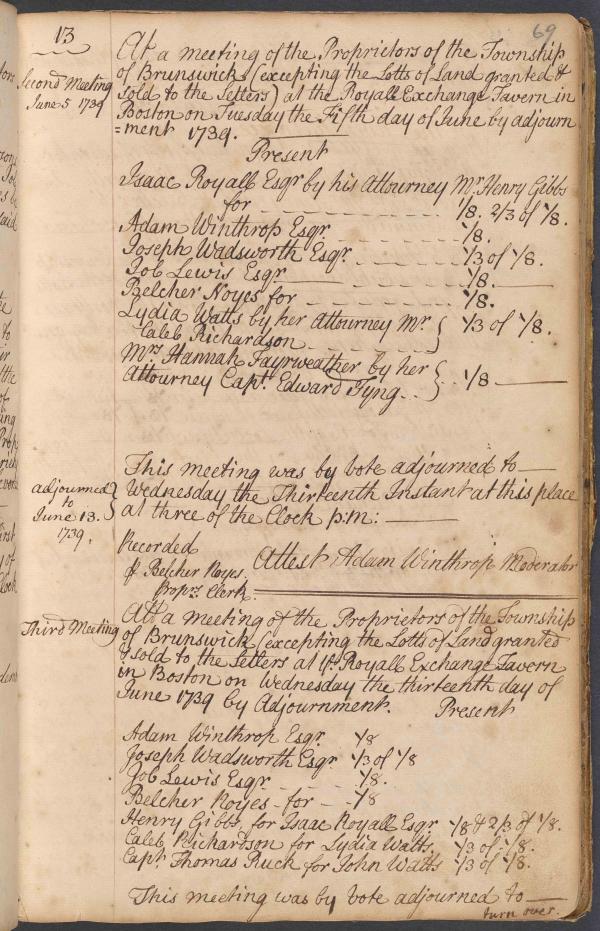 13
69
Second Meeting
June 5 1739
At a meeting of the Proprietors of the Township
of Brunswick (excepting the Lotts of Land granted &
sold to the Setlers) at the Royall Exchange Tavern in
Boston on Tuesday the Fifth day of June by adjourn
=ment 1739.
Present
Isaac Royall Esqr by his Attourney Mr Henry Gibbs
for 1/8. 2/3 of 1/8.
Adam Winthrop Esqr. 1/8.
Joseph Wadsworth Esqr. 1/3 of 1/8.
Job Lewis Esqr 1/8.
Belcher Noyes for 1/8.
Lydia Watts by her Attourney Mr. } 1/3 of 1/8.
Caleb Richardson
Mrs Hannah Fayrweather by her } 1/8
Attourney Capt. Edward Tyng
This meeting was by vote adjourned to
adjourned }
to
June 13.
1739.
Wednesday the Thirteenth Instant at this place
at three of the Clock p:m:
Recorded
Belcher Noyes
Propr. Clerk.
Attest Adam Winthrop Moderator
Third Meeting
At a meeting of the Proprietors of the Township
of Brunswick (excepting the Lotts of Land granted
& sold to the Setlers at ye. Royall Exchange Tavern
in Boston on Wednesday the thirteenth day of
June 1739 by Adjournment. Present
Adam Winthrop Esqr. 1/8
Joseph Wadsworth Esqr. 1/3 of 1/8
Job Lewis Esqr 1/8.
Belcher Noyes for 1/8
Henry Gibbs for Isaac Royall Esqr 1/8 & 2/3 of 1/8.
Caleb Richardson for Lydia Watts. 1/3 of 1/8.
Capt. Thomas Ruck for John Watts 1/3 of 1/8.
This meeting was by vote adjourned to
turn over.